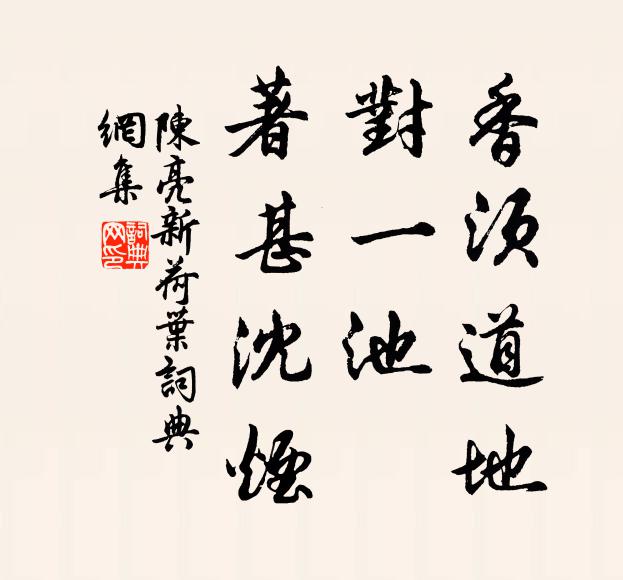 香須道地
對一池
著甚沈煙
陳亮新荷葉詞典
網集
詞典网印